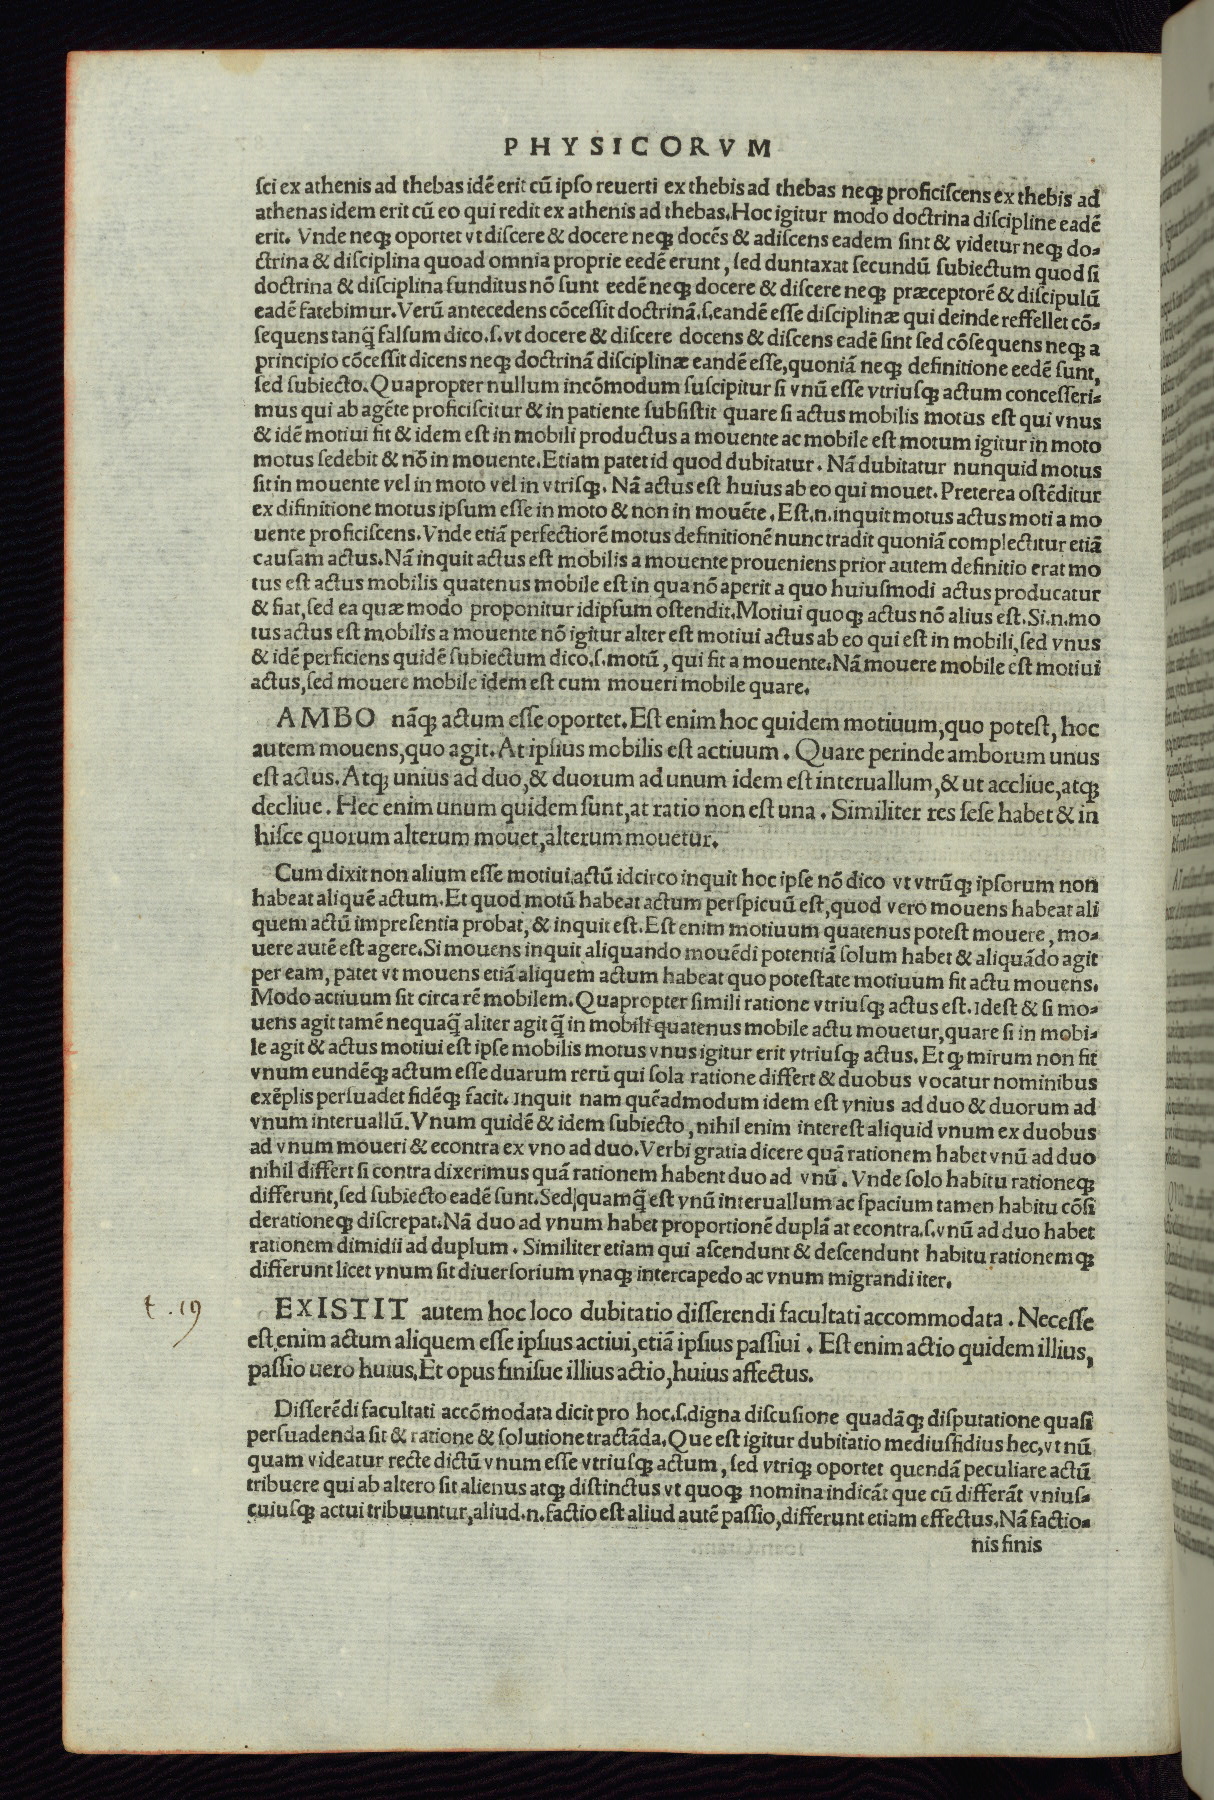 PHYSICORVM
ſci ex athenis ad thebas idē erit cū ipſo reuerti ex thebis ad thebas neqꝫ proficiſcens ex thebis ad
athenas idem erit cū eo qui redit ex athenis ad thebas. Hoc igitur modo doctrina diſcipline eadē
erit. Vnde neqꝫ oportet vt diſcere & docere neqꝫ docēs & adiſcens eadem ſint & videtur neqꝫ do-
ctrina & diſciplina quoad omnia proprie eedē erunt, ſed duntaxat secundū ſubiectum quod ſi
doctrina & diſciplina funditus nō ſunt eedē neqꝫ docere & diſcere neqꝫ præceptorē & diſcipulū
eadē fatebimur. Verū antecedens cōceſſit doctrinā .ſ. eandē eſſe diſciplinæ qui deinde reffellet cō-
ſequens tanq̄ falſum dico .ſ. vt docere & diſcere docens & diſcens eadē ſint ſed cōſequens neqꝫ a
principio cōceſſit dicens neqꝫ doctrinā diſciplinæ eandē eſſe, quoniā neqꝫ definitione eedē ſunt,
ſed ſubiecto. Quapropter nullum incōmodum ſuſcipitur ſi vnū eſſe vtriuſqꝫ actum conceſſeri-
mus qui ab agēte proficiſcitur & in patiente ſubſiſtit quare ſi actus mobilis motus eſt qui vnus
& idē motiui fit & idem eſt in mobili productus a mouente ac mobile eſt motum igitur in moto
motus ſedebit & nō in mouente. Etiam patet id quod dubitatur. Nā dubitatur nunquid motus
ſit in mouente vel in moto vel in vtriſqꝫ. Nā actus eſt huius ab eo qui mouet. Preterea oſtēditur
ex difinitione motus ipſum eſſe in moto & non in mouēte. Eſt .n. inquit motus actus moti a mo
uente proficiſcens. Vnde etiā perfectiorē motus definitionē nunc tradit quoniā complectitur etiā
cauſam actus. Nā inquit actus eſt mobilis a mouente proueniens prior autem definitio erat mo
tus eſt actus mobilis quatenus mobile eſt in qua nō aperit a quo huiuſmodi actus producatur
& fiat, ſed ea quæ modo proponitur idipſum oſtendit. Motiui quoqꝫ actus nō alius eſt. Si .n. mo
tus actus eſt mobilis a mouente nō igitur alter eſt motiui actus ab eo qui eſt in mobili, ſed vnus
& idē perficiens quidē ſubiectum dico .ſ. motū, qui fit a mouente. Nā mouere mobile eſt motiui
actus, ſed mouere mobile idem eſt cum moueri mobile quare.
AMBO nāqꝫ actum eſſe oportet. Eſt enim hoc quidem motiuum, quo poteſt, hoc
autem mouens, quo agit. At ipſius mobilis eſt actiuum. Quare perinde amborum unus
eſt actus. Atqꝫ unius ad duo, & duorum ad unum idem eſt interuallum, & ut accliue, atqꝫ
decliue. Hec enim unum quidem ſunt, at ratio non eſt una. Similiter res ſeſe habet & in
hiſce quorum alterum mouet, alterum mouetur.
Cum dixit non alium eſſe motiui actū idcirco inquit hoc ipſe nō dico vt vtrūqꝫ ipſorum non
habeat aliquē actum. Et quod motū habeat actum perſpicuū eſt, quod vero mouens habeat ali
quem actū impreſentia probat, & inquit eſt. Eſt enim motiuum quatenus poteſt mouere, mo-
uere autē eſt agere. Si mouens inquit aliquando mouēdi potentiā ſolum habet & aliquādo agit
per eam, patet vt mouens etiā aliquem actum habeat quo poteſtate motiuum fit actu mouens.
Modo actiuum ſit circa rē mobilem. Quapropter ſimili ratione vtriuſqꝫ actus eſt. Ideſt & ſi mo-
uens agit tamē nequaq̄ aliter agit q̄ in mobili quatenus mobile actu mouetur, quare ſi in mobi-
le agit & actus motiui eſt ipſe mobilis motus vnus igitur erit vtriuſqꝫ actus. Et qꝫ mirum non fit
vnum eundēqꝫ actum eſſe duarum rerū qui ſola ratione differt & duobus vocatur nominibus
exēplis perſuadet fidēqꝫ facit. Inquit nam quēadmodum idem eſt vnius ad duo & duorum ad
vnum interuallū. Vnum quidē & idem ſubiecto, nihil enim intereſt aliquid vnum ex duobus
ad vnum moueri & econtra ex vno ad duo. Verbi gratia dicere quā rationem habet vnū ad duo
nihil differt ſi contra dixerimus quā rationem habent duo ad vnū. Vnde ſolo habitu rationeqꝫ
differunt, ſed ſubiecto eadē ſunt. Sed quamq̄ eſt vnū interuallum ac ſpacium tamen habitu cōſi
derationeqꝫ diſcrepat. Nā duo ad vnum habet proportionē duplā at econtra .ſ. vnū ad duo habet
rationem dimidii ad duplum. Similiter etiam qui aſcendunt & deſcendunt habitu rationemqꝫ
differunt licet vnum ſit diuerſorium vnaqꝫ intercapedo ac vnum migrandi iter.
t. 19
EXISTIT autem hoc loco dubitatio diſſerendi facultati accommodata. Neceſſe
eſt enim actum aliquem eſſe ipſius actiui, etiā ipſius paſſiui. Eſt enim actio quidem illius,
paſſio uero huius. Et opus finiſue illius actio, huius affectus.
Diſſerēdi facultati accōmodata dicit pro hoc .ſ. digna diſcuſione quadāqꝫ diſputatione quaſi
perſuadenda ſit & ratione & ſolutione tractāda. Que eſt igitur dubitatio mediuſfidius hec, vt nū
quam videatur recte dictū vnum eſſe vtriuſqꝫ actum, ſed vtriqꝫ oportet quendā peculiare actū
tribuere qui ab altero ſit alienus atqꝫ diſtinctus vt quoqꝫ nomina indicāt que cū differāt vniuſ-
cuiuſqꝫ actui tribuuntur, aliud .n. factio eſt aliud autē paſſio, differunt etiam effectus. Nā factio-
nis finis